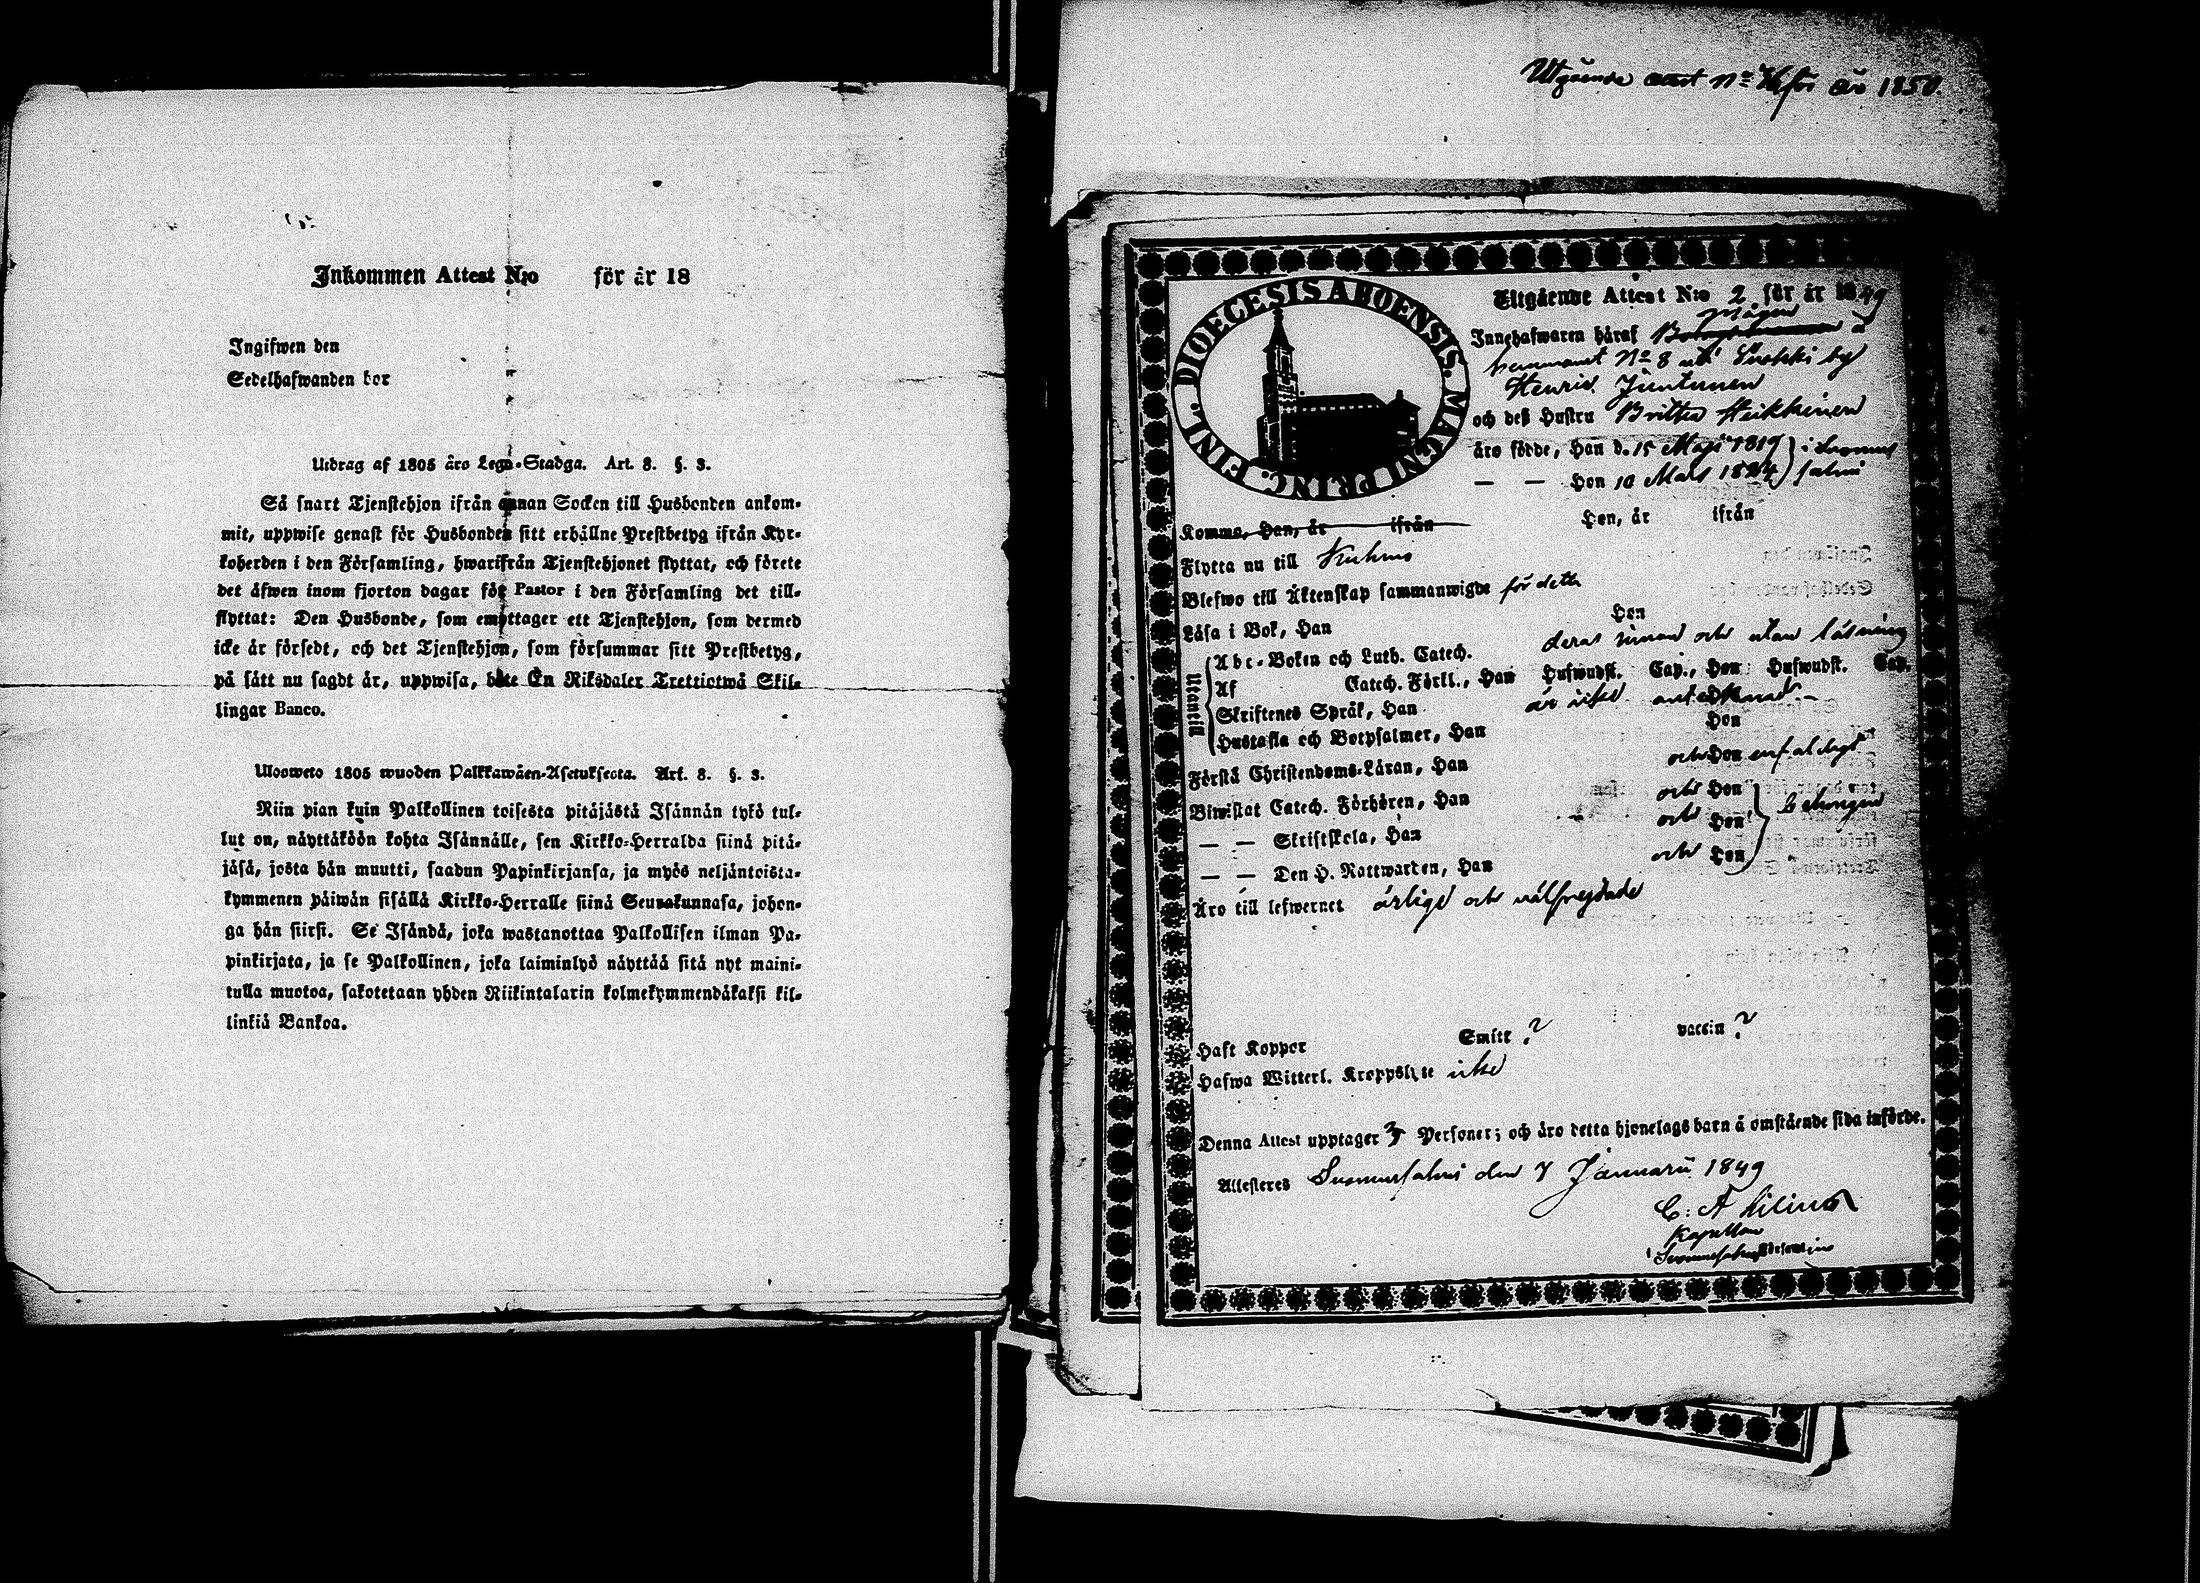 Inkommen Attest N:o för år 18
Ingifwen den
Sedelhafwanden bor
Utdrag af 1805 åro Lego-Stadga. Art. 8. §. 3.
Så snart Tjenstehjon ifrån annan Socken till Husbonden ankom-
mit, uppwise genast för Husbonden sitt erhållne Prestbetyg ifrån Kyr-
koherden i den Församling, hwarifrån Tjenstehjonet flyttat, och förete
det äfwen inom fjorton dagar för Pastor i den Församling det till-
flyttat: Den Husbonde, som emottager ett Tjenstehjon, som dermed
icke är försedt, och det Tjenstehjon, som försummar sitt Prestbetyg,
på sätt nu sagdt är, uppwisa, böte En Riksdaler Trettiotwå Skil-
lingar Banco.
Ulosweto 1805 wuoden Palkkawäen-Asetuksesta. Art. 8. §. 3.
Niin pian kuin Palkollinen toisesta pitäjästä Isännän tykö tul-
lut on, näyttäköön kohta Isännälle, sen Kirkko-Herralda siinä pitä-
jäsä, josta hän muutti, saadun Papinkirjansa, ja myös neljäntoista-
kymmenen päiwän sisällä Kirkko-Herralle siinä Seurakunnasa, johon-
ga hän siirsi. Se Isändä, joka wastanottaa Palkollisen ilman Pa-
pinkirjata, ja se Palkollinen, joka laiminlyö näyttää sitä nyt maini-
tulla muotoa, sakotetaan yhden Riikintalarin kolmekymmendäkaksi kil-
linkiä Bankoa.
Utgående attest N:o för år 1850.
DIOECESIS ABOENSIS. MAGNI PRINC. FINL.
Utgående Attest N:o 2 för år 1849
Mågen
Innehafwaren häraf å
hemmanet No 8 uti by
Henric Juntunen
och deß Hustru Britta Heikkinen
äro födde, Han d. 15 Maji 1819 i Suomus
— — Hon 10 Mars 1824 salmi
Komme, Han, år ifrån Hon, år ifrån
Flytta nu till Kuhmo
Blefwo till Äktenskap sammanwigde för detta
Läsa i Bok, Han Hon
Utantill
Abc-Boken och Luth. Catech. deras innan och utan läsning
Af Catech. Förkl., Han Hufwudst. Cap., Hon Hufwudst. Cap.
Skriftenes Språk, Han är icke antecknad Hon
Hustafla och Botpsalmer, Han
Förstå Christendoms-Läran, Han och Hon enfaldigt
Biwistat Catech. Förhören, Han och Hon
— — Skriftskola, Han och Hon
— — Den H. Nattwarden, Han och Hon
Äro till lefwernet ärlige och välfrejdade
Haft Koppor Smitt ? vaccin ?
Hafwa Witterl. Kroppslyte icke
Denna Attest upptager Personer; och äro detta hjonelags barn å omstående sida införde.
Attesteres Suomussalmi den 7 Januarii 1849
C: A
Kapellan
i